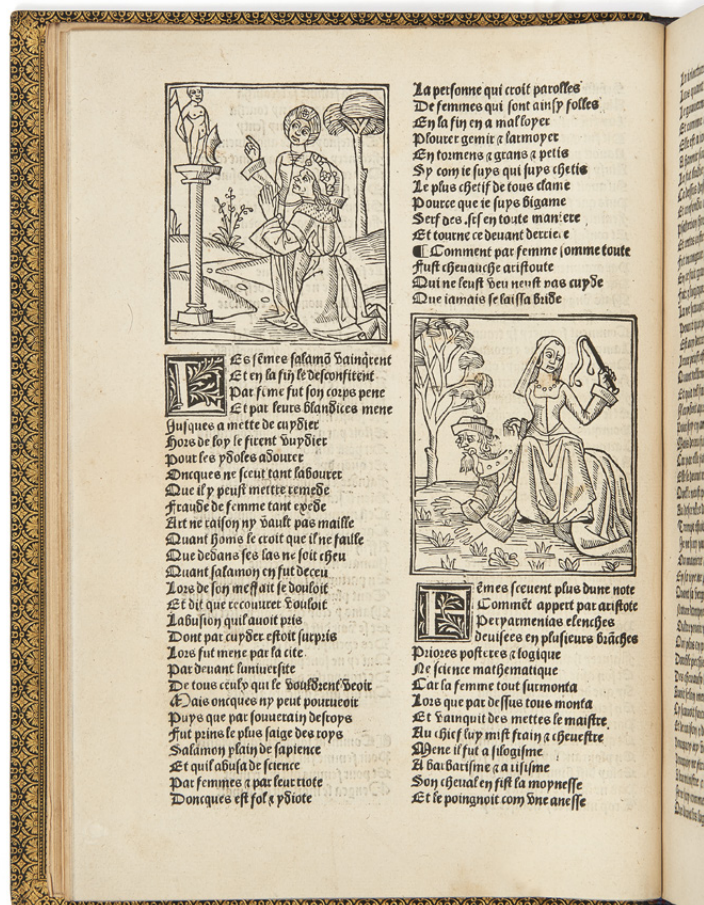 Es fẽmes salamõ vainq̃rent
Et en la fin le desconfirent
Par fẽme fut son corps pene
Et par leurs blandices mene
Jusques a mettre de cuyder
Hors de loy le firent vuydier
Pour les ydoles adourer
Oncques ne sceut tant labourer
Que il y peust mettre remede
Fraude de femme tant excede
Art ne raison ny vault pas maille
Quant homs le croit que il ne faille
Que dedans ses las ne soit cheu
Quant salamon en fut deceu
Lors de son meffait se douloit
Et dit que recouurer vouloit
Labusion quil auoit pris
Dont par cuyder estoit surpris
Lors fut mene par la cite
Par deuant luniuersite
De tous ceulx qui le vouldrent veoir
Mais oncques ny peut pourueoir
Puys que par souuerain desroys
Fut prins le plus saige des roys
Salamon plain de sapience
Et qui abusa de science
Par femmes ⁊ par leur riote
Doncques est fol ⁊ ydiote
La personne qui croit parolles
De femmes qui sont ainsy folles
En la fin en a mal loyer
Plourer gemir ⁊ larmoyer
En tormens ⁊ grans ⁊ petis
Sy com ie suys qui suys chetis
Le plus chetif de tous clame
Pource que ie suys bigame
Serf des serf en toute maniere
Et tourne ce deuant derriere
¶ Comment par femme somme toute
Fust cheuauche aristoute
Qui ne leust veu neust pas cuyde
Que iamais se laissa bride
F
ẽmes sceuent plus dune note
Commẽt appert par aristote
Peryarmenias elenches
deuisees en plusieurs brãches
Priores posteres ⁊ logique
Ne science mathematique
Car la femme tout surmonta
Lors que par dessus tous monta
Et vainquit des mettes le maistre
Au chief luy mist frain ⁊ cheuestre
Mene il fut a silogisme
A barbarisme ⁊ a
Son cheual en fist la moynesse
Et le poingnoit com vne anesse